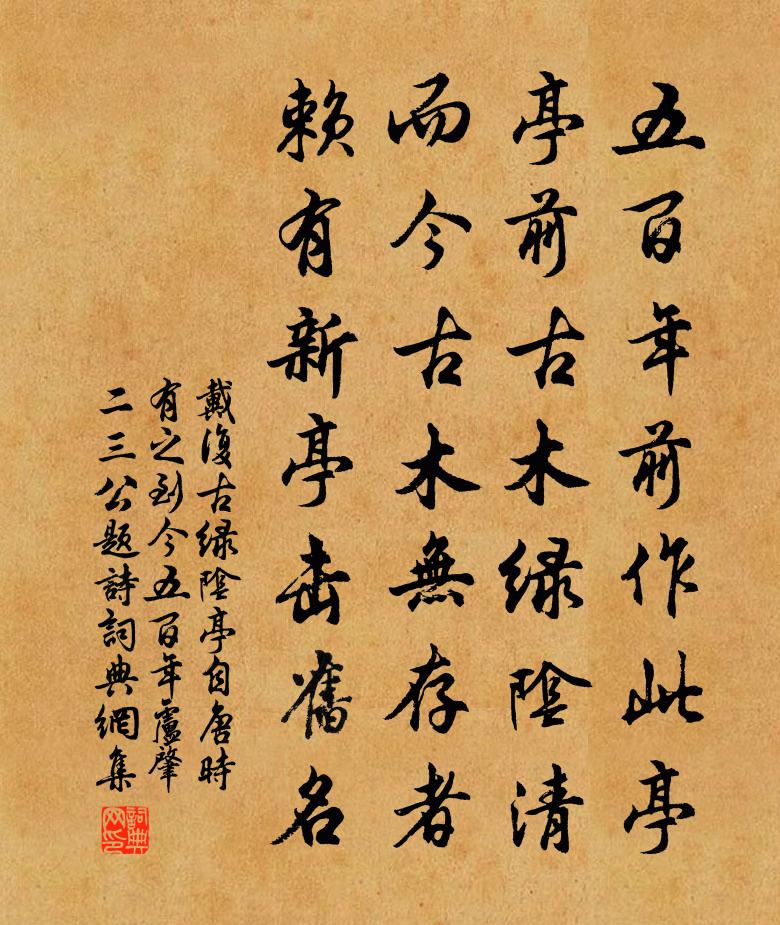 五百年前作此亭
亭前古木緑陰清
而今古木無存者
賴有新亭击舊名
戴復古緑陰亭自唐時
有之到今五百年盧肇
二三公題詩詞典網集
詞典
网印